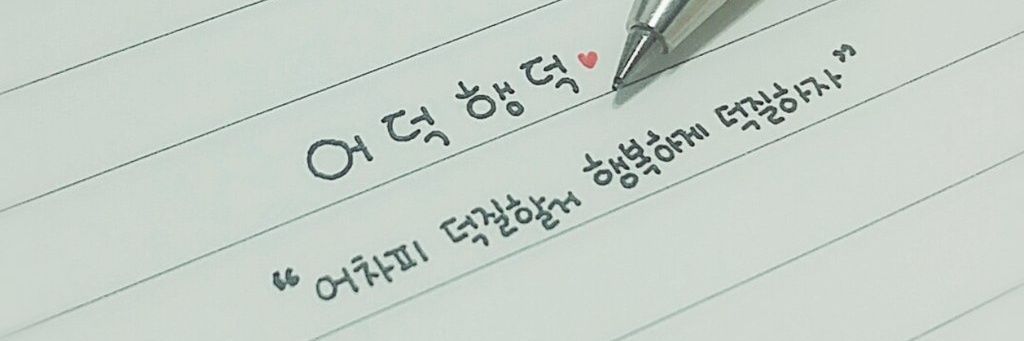 어덕행덕♥
“어차피 덕질할거 행복하게 덕질하자”